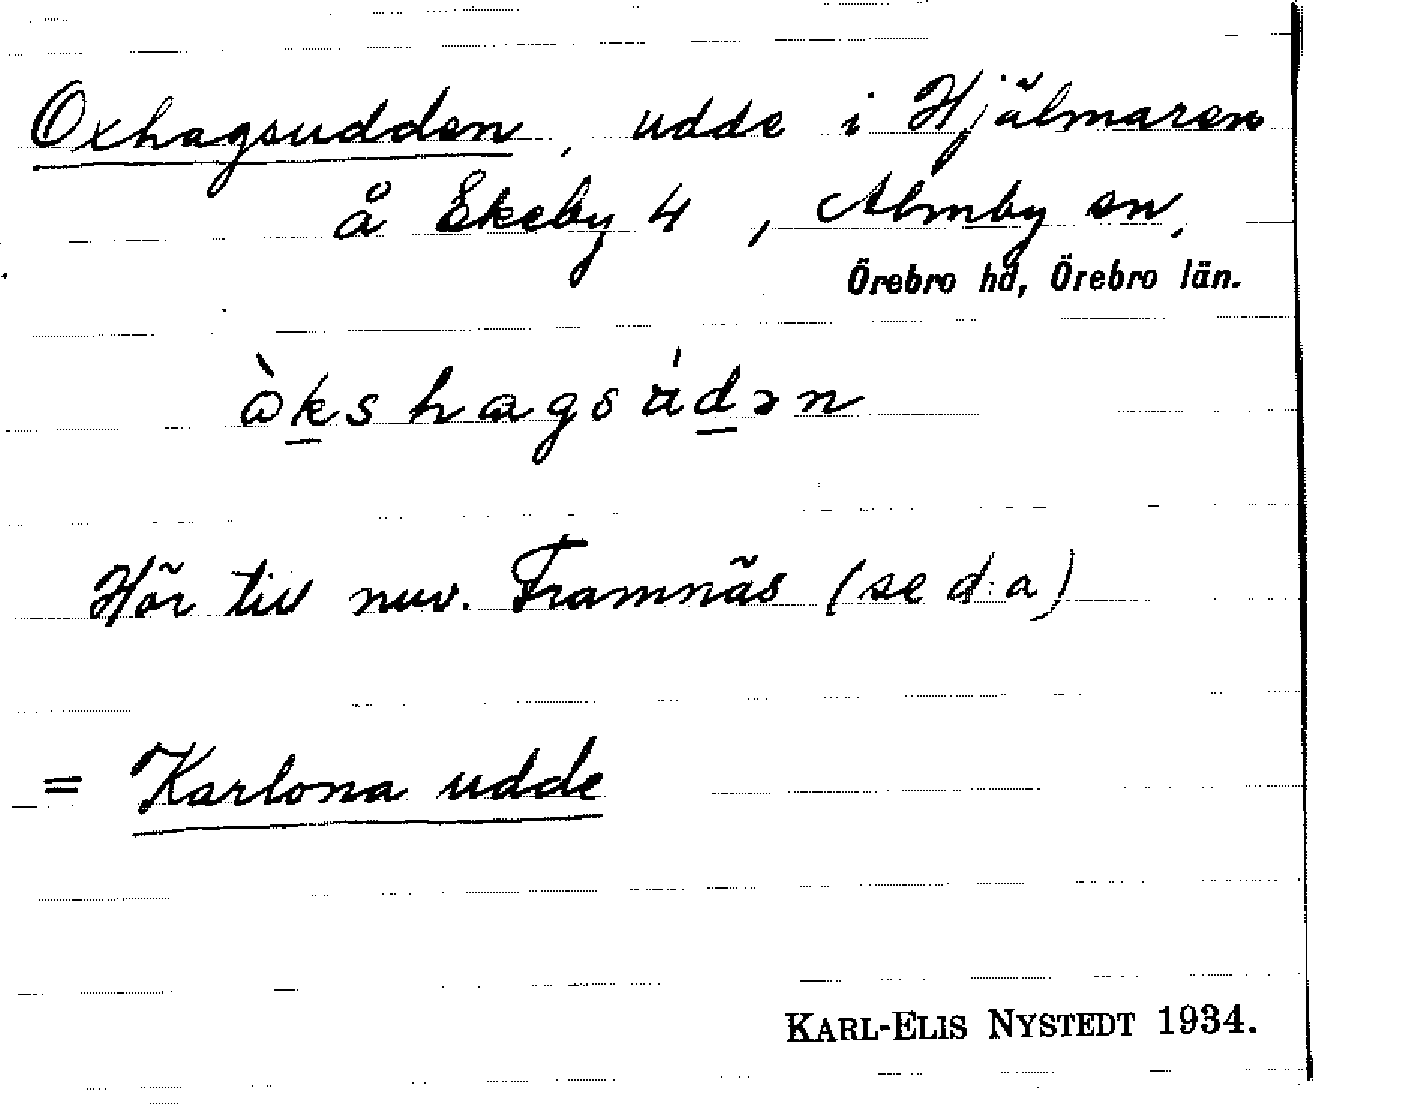 Oxhagsudden, udde i Hjälmaren
å Ekeby 4, Almby sn,
Örebro hd, Örebro län.
Hör till nuv. Framnäs (se d:a)
= Karlona udde
KARL-ELIS NYSTEDT 1934.